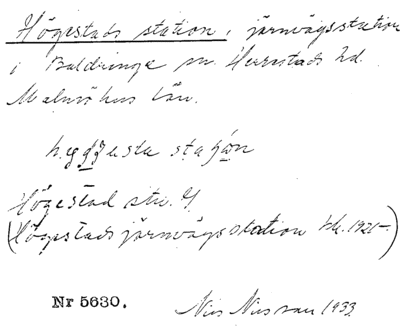 Högestads station, järnvägsstation
i Baldringe sn. Herrestads hd.
Malmöhus län.
Högestad stn. G
(Högestads järnvägsstation 1921-)
Nr 5630. Nils Nilsson 1933